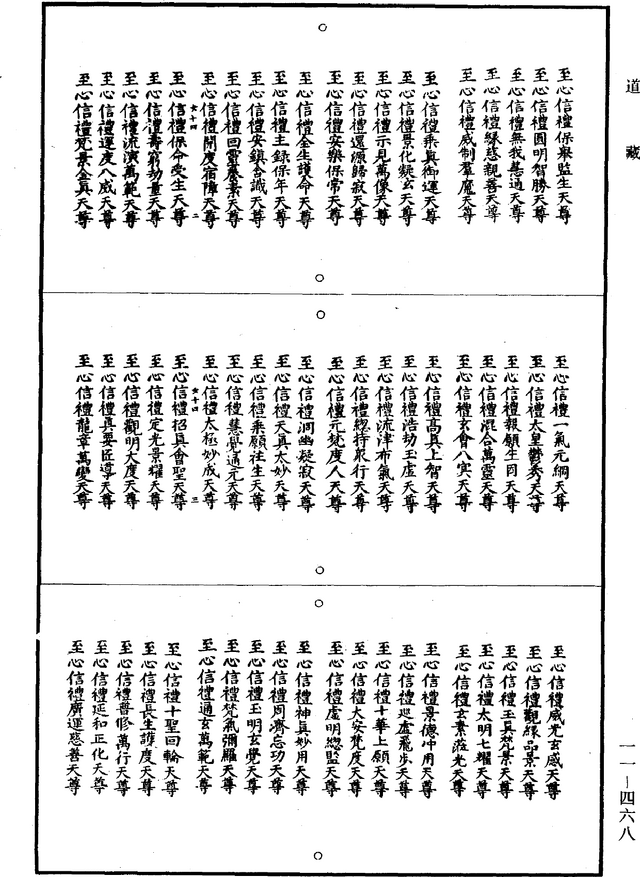 道藏
至心信禮保舉監生天尊
至心信禮圓明智勝天尊
至心信禮無我慈通天尊
至心信禮緣慈親善天尊
至心信禮威制羣魔天尊
至心信禮乘真御運天尊
至心信禮景化凝玄天尊
至心信禮示見萬像天尊
至心信禮還源歸寂天尊
至心信禮安樂保常天尊
至心信禮全生護命天尊
至心信禮主録保年天尊
至心信禮安鎮合識天尊
至心信禮回靈慶景天尊
至心信禮開度宿障天尊
女十四 二
至心信禮保命受生天尊
至心信禮壽窮劫量天尊
至心信禮流演萬範天尊
至心信禮運度八威天尊
至心信禮梵景金真天尊
至心信禮一氣元綱天尊
至心信禮太皇鬱秀天尊
至心信禮報願生因天尊
至心信禮混合萬靈天尊
至心信禮玄會八宾天尊
至心信禮高真上智天尊
至心信禮浩劫玉虛天尊
至心信禮流津布氣天尊
至心信禮總持衆行天尊
至心信禮元梵度人天尊
至心信禮洞幽凝寂天尊
至心信禮天真太妙天尊
至心信禮乘願往生天尊
至心信禮慧覺通元天尊
至心信禮太極妙成天尊
女十四 三
至心信禮招真會聖天尊
至心信禮定光景耀天尊
至心信禮觀明大度天尊
至心信禮真要匠導天尊
至心信禮龍章萬變天尊
至心信禮威光玄感天尊
至心信禮觀緣品景天尊
至心信禮玉真梵景天尊
至心信禮太明七耀天尊
至心信禮玄素莅光天尊
至心信禮景德冲用天尊
至心信禮巡虛飛步天尊
至心信禮十華上願天尊
至心信禮大安梵度天尊
至心信禮虛明總監天尊
至心信禮神真妙用天尊
至心信禮周濟忘功天尊
至心信禮玉明玄覺天尊
至心信禮梵氣彌羅天尊
至心信禮通玄萬範天尊
至心信禮十聖回輪天尊
至心信禮長生護度天尊
至心信禮普修萬行天尊
至心信禮延和正化天尊
至心信禮廣運慈善天尊
一一—四六八